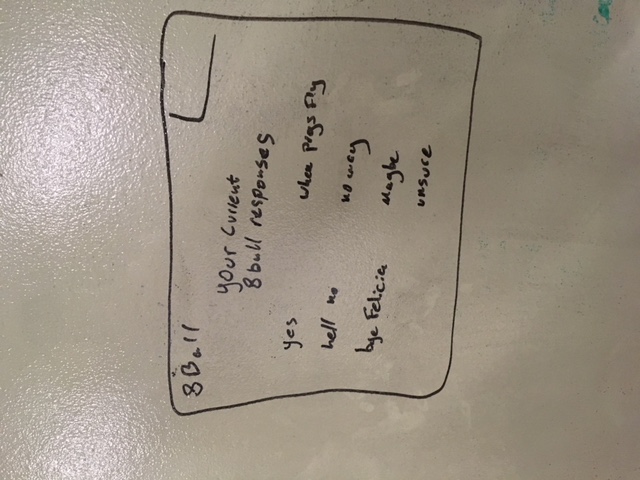 8Ball
your current
8ball responses
yes
hell no
bye Felicia
when pigs fly
no way
Maybe
unsure